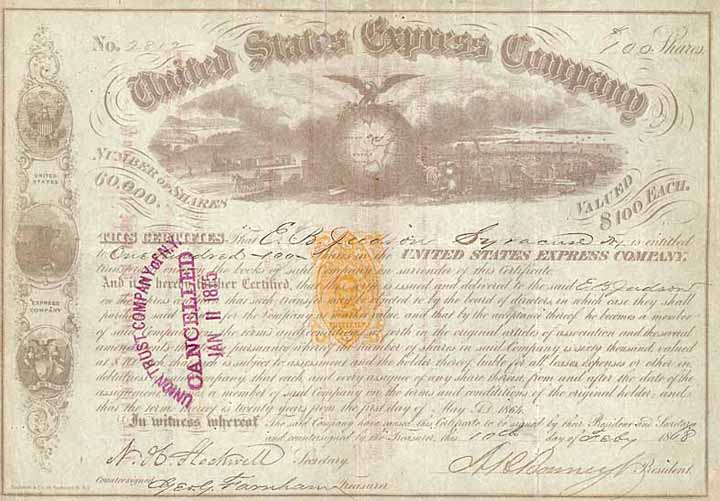 No. 2812
100 Shares.
United States Express Company
NUMBER OF SHARES
60,000.
VALUED
$100 EACH.
UNITED
STATES
EXPRESS
COMPANY
THIS CERTIFIES, That E. B. Judson Syracuse NY is entitled
to One Hundred 100 Shares in the UNITED STATES EXPRESS COMPANY,
transferable on the books of said Company on surrender of this Certificate.
And it is hereby further Certified, that issued and delivered to the said E. B. Judson
on the express that such transfer may be by the board of directors, in which case they shall
value, and that by the acceptance thereof he becomes a member
of said Company the terms set forth in the original articles of association and the several
amendments number of shares in said Company is sixty thousand, valued
at $100 is subject to assessment and the holder thereof liable for all losses, expenses or other in-
debtedness Company; that each and every assignee of any share therein from and after the date of the
assignment a member of said Company on the terms and conditions of the original holder; and
that the term is twenty years from the first day of May A.D. 1864.
In witness whereof The said Company have caused this Certificate to be signed by their President and Secretary
and countersigned by the Treasurer, this 10th day of Feby 1868
Secretary.
President.
Countersigned Geo. G. Farnham Treasurer
UNION TRUST COMPANY OF N.Y.
CANCELLED
JAN 11 1895